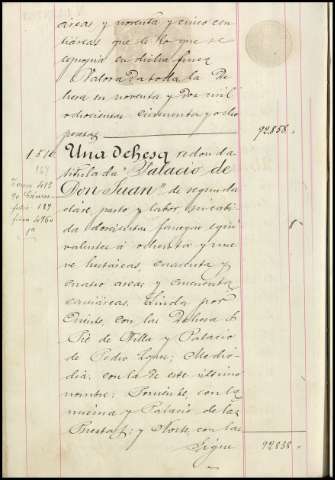 áreas y noventa y cinco cen
tiáreas que de lo que se
compone en dicha finca
Valorada toda la De
hesa en noventa y dos mil
ochocientas cincuenta y ocho
pesetas 92858.
Una dehesa redonda
titulada "Palacio de
Don Juan" de segunda
clase, pasto y labor, su cabi
da doscientas fanegas equi
valentes á ochenta y nue
ve hectáreas, cuarenta y
cuatro areas y cincuenta
centiáreas. Linda por
Oriente, con las Dehesa
Pié de Villa y Palacio
de Pedro Lopez; Medio
dia, con la de este último
nombre; Poniente, con la
misma y Palacio de las
y Norte, con las
Sigue 92858.